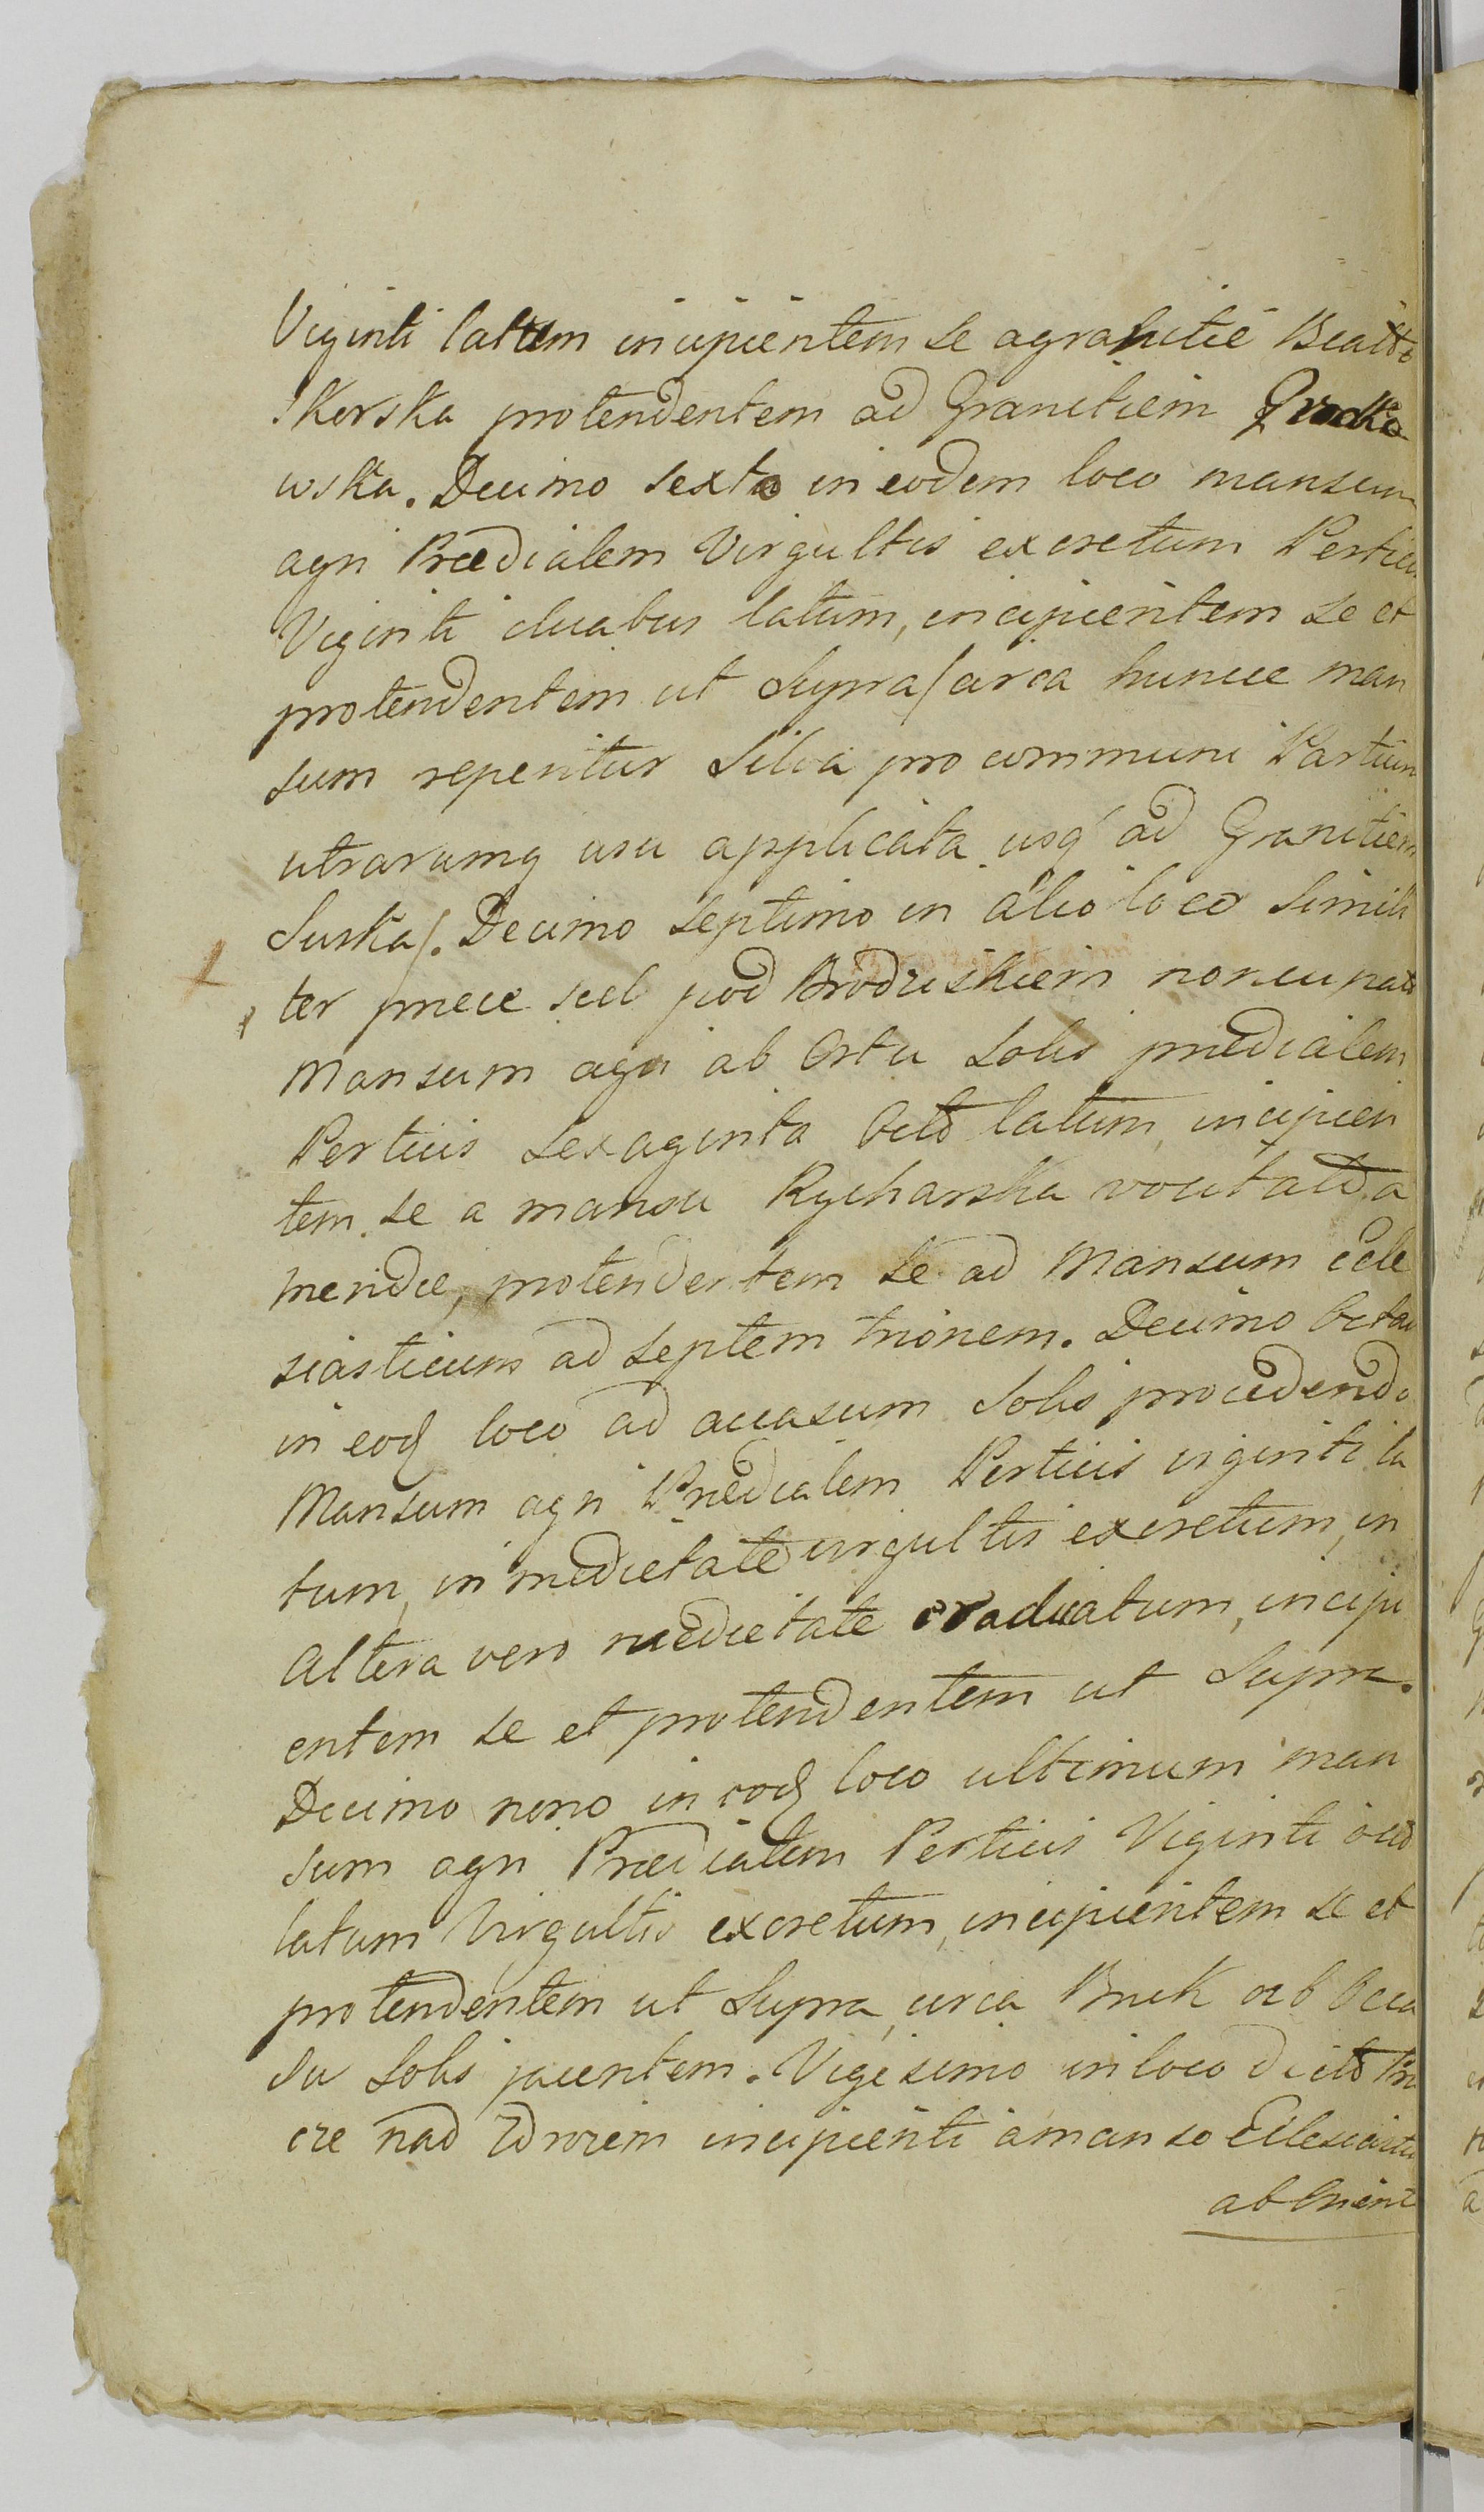 Viginti latum incipientem se agranitie Biatto
skorska protendentem ad Granitiem Grodko
wska. Decimo sexto in eodem loco mansum
agri Prædialem Virgultis excretum Perticis
Viginti duabus latum, incipientem se et
protendentem ut Supra /circa huncce man
sum reperitur Silva pro communi Partium
utrarumq usu applicata usq ad Granitiem
Suska/. Decimo septimo in alio loco simili
ter przecie seel pod Brodziskiem noncupato
Mansum agri ab Ortu Solis prædialem
Perticis Sexaginta Octo latum, incipien
tem se a mansu Rycharska vocitato a
meridie, protendentem se ad Mansum ecle
siasticum ad Septem trionem. Decimo Octavo
in eod loco ad accasum Solis procedendo
Mansum agri Prædialem Perticis viginti la
tum, in medietate virgultis excretum, in
altera vero medietate eradicatum, incipi
entem se et protendentem ut Supra.
Decimo nono in eod loco ultimum man
sum agri Prædialem Perticis Viginti octo
latum Virgultis excretum, incipientem se et
protendentem ut Supra, circa Bruk ab Occa
su Solis jacentem. Vigesimo in loco dicto Prze
cze nad Zdrozem incipienti a manso Eclesiastico
ab Orient